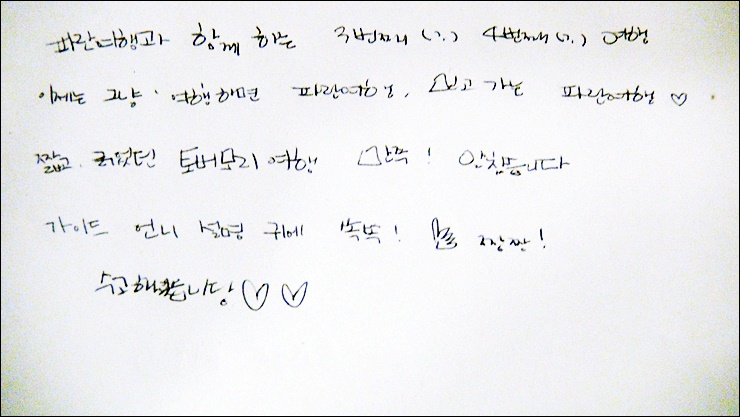 파란여행과 함께 하는 3번째(?) 4번째(?) 여행
이제는 그냥 여행하면 파란여행, 믿고 가는 파란여행 ♡
짧고, 토버모리 여행 만족! 알찼습니다
가이드 언니 설명 귀에 쏙쏙! 짱짱!
수고하셨습니당 ♡ ♡